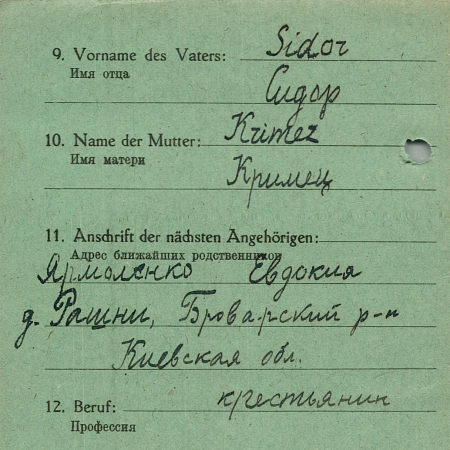 9. Vorname des Vaters: Sidor
Имя отца
Сидор
10. Name der Mutter: Krimez
Имя матери
Кримец
11. Anschrift der nächsten Angehörigen:
Адрес ближайших родственников
Ярмоленко Евдокия
д. Рашни, Броварский р-н
Киевская обл.
12. Beruf: крестьянин
Профессия